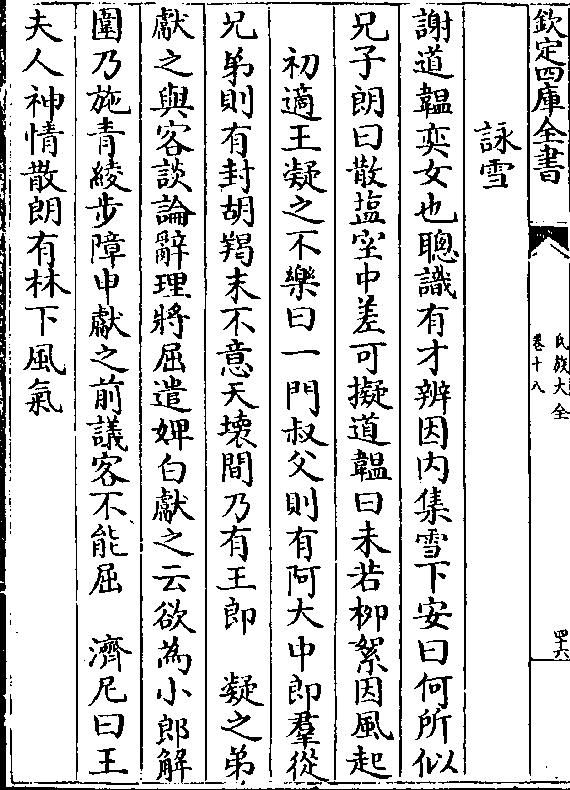 欽定四庫全書
氏族大全
卷十八
四十六
詠雪
謝道韞奕女也聰識有才辨因内集雪下安曰何所似
兄子朗曰散塩空中差可擬道韞曰未若柳絮因風起
初適王凝之不樂曰一門叔父則有阿大中郎羣從
兄弟則有封胡羯末不意天壤間乃有王郎　凝之弟
獻之與客談論辭理將屈遣婢白獻之云欲為小郎解
圍乃施青綾步障申獻之前議客不能屈　濟尼曰王
夫人神情散朗有林下風氣